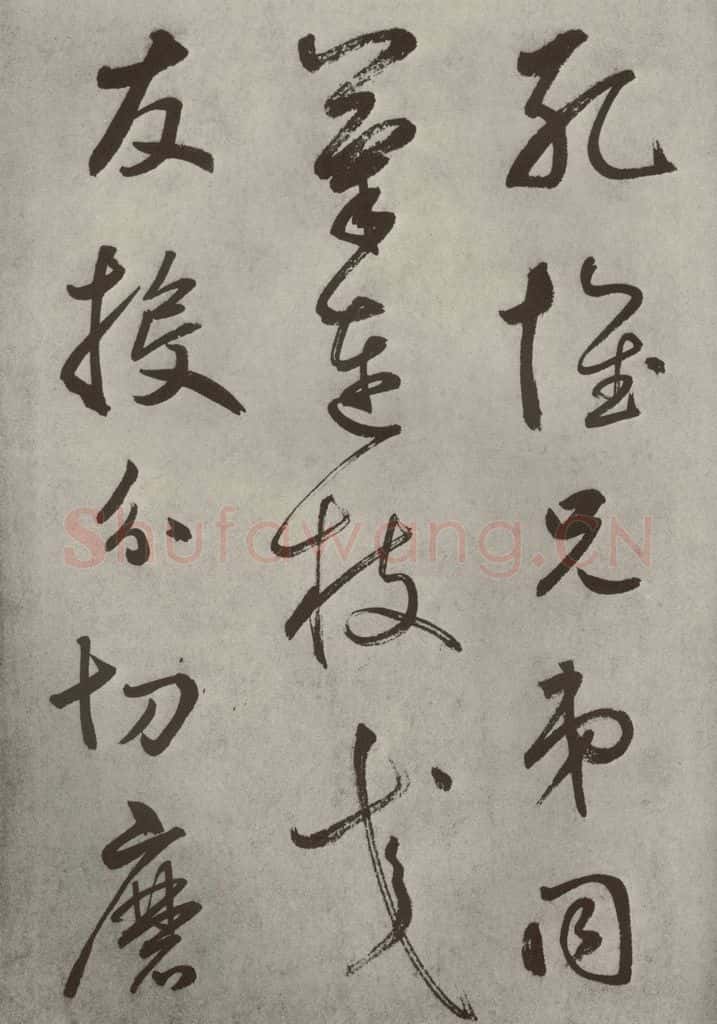 孔懷兄弟同
氣連枝交
友投分切磨
Shufawang.CN